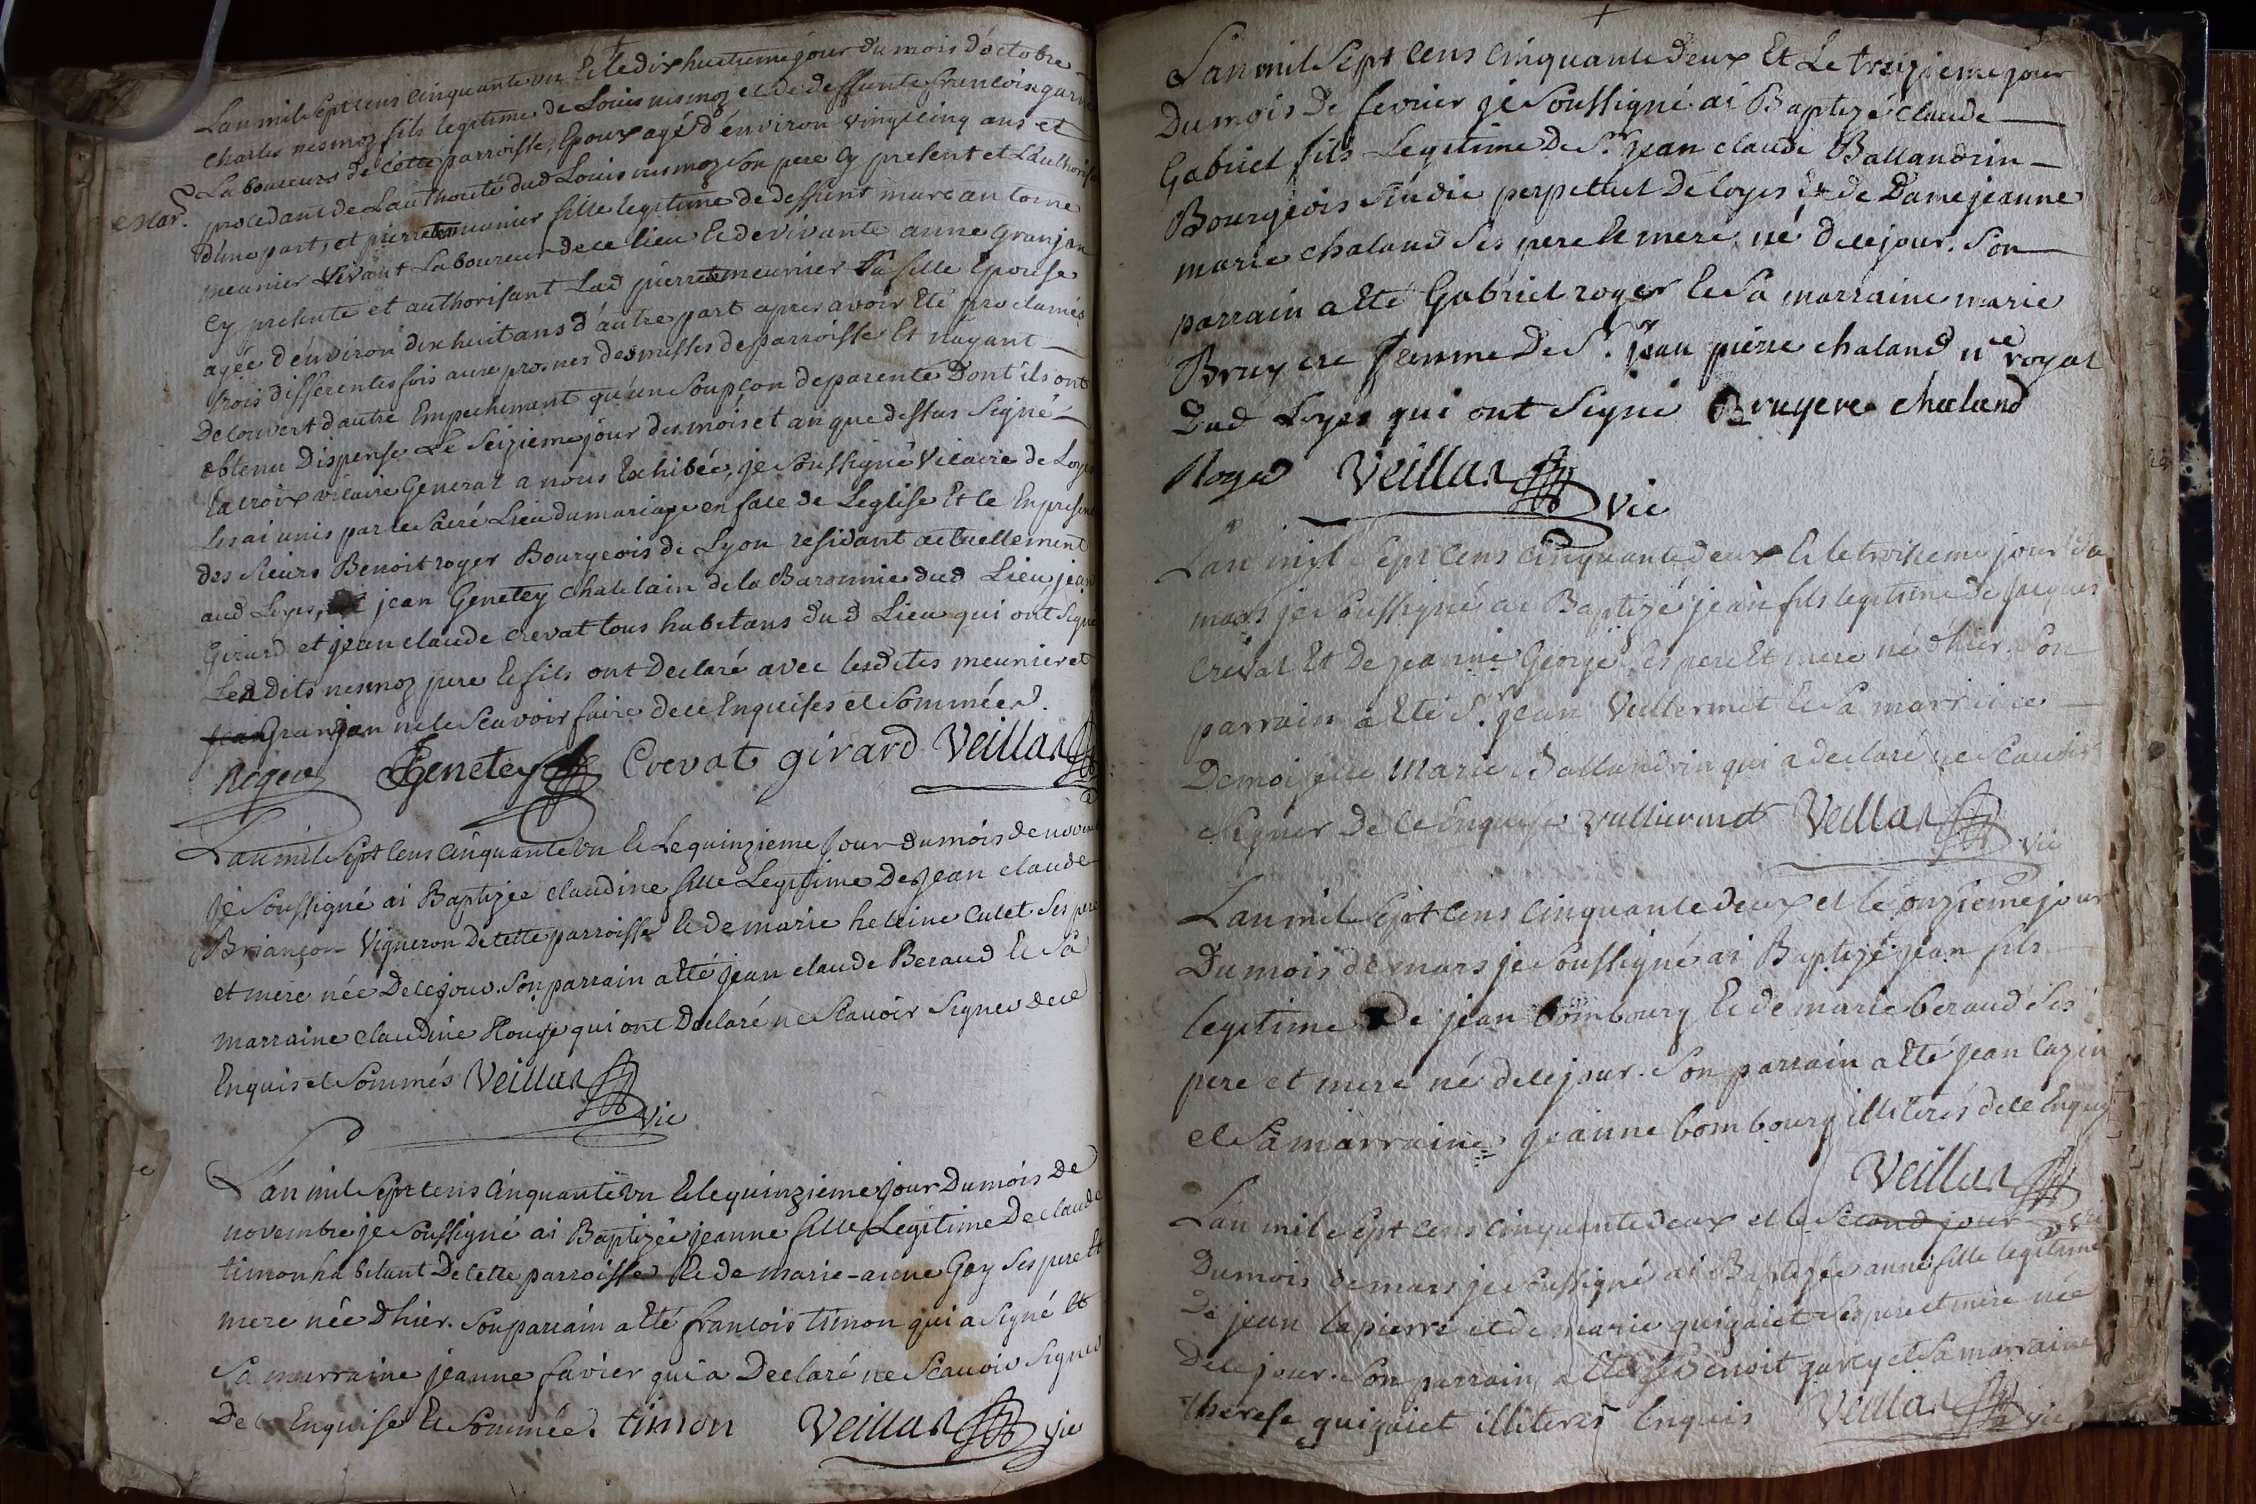 L'an mil sept cens cinquante un Et le dix huitieme jour du mois d'octobre
charles nesmoz fils legitime de Louis nesmoz et de deffunte francoise garn
Laboureurs de cette parroisse, Epoux agé d'environ vingt cinq ans et
Mar. procedant de L'authorité dud Louis nesmoz son pere Cy present et L'authorisa
d'une part, et pierrette meunier fille legitime de deffunt marc antoine
meunier vivant Laboureur de ce lieu Et de vivante anne Granjan
Cy presente et authorisant Lad pierrette meunier sa fille Epouse
agée d'environ dix huit ans d'autre part apres avoir Eté proclamés
trois differentes fois aux prosnes des messes de parroisse Et n'ayant
decouvert d'autre Empechement qu'un soupçon de parenté Dont ils ont
obtenu Dispense Le seizieme jour du mois et an que dessus signé
Lacroix vicaire General a nous Exhibée, je soussigné Vicaire de Loyes
les ai unis par le sacré Lien du mariage en face de L'eglise Et ce En presen
des sieurs Benoit roger Bourgeois de Lyon residant actuellement
aud Loyes, jean Genetey chatelain de la Baronnie dud Lieu, jean
Girard et jean claude crevat tous habitans dud Lieu qui ont signé
Lesdits nesmoz pere Et fils ont Declaré avec lesdites meunier et
Granjan ne le scavoir faire de ce Enquises et sommées.
Roger Genetey Crevat girard Veillas
L'an mil sept cens cinquante un Et Le quinzieme jour du mois de novem
je soussigné ai Baptizée claudine fille Legitime De jean claude
Briançon Vigneron de cette parroisse Et de marie heleine Cutet ses pere
et mere née De ce jour. Son parrain a Eté jean claude Beraud Et sa
marraine claudine Rouge qui ont Declaré ne scavoir signer de ce
Enquis et sommés Veillas
Vic
L'an mil sept cens cinquante un Et le quinzieme jour Du mois De
novembre je soussigné ai Baptizée jeanne fille Legitime De claude
timon habitant De cette parroisse Et de marie-anne Gay ses pere Et
mere née d'hier. Son parrain a Eté francois timon qui a signé Et
sa marraine jeanne favier qui a Declaré ne scavoir signer
De ce Enquise Et sommée. timon Veillas Vic
L'an mil sept cens cinquante deux Et Le treizieme jour
Du mois De fevrier je soussigné ai Baptizé claude
Gabriel fils Legitime De Sr. jean claude Ballandrin
Bourgeois sindic perpetuel De loyes Et de Dame jeanne
marie chaland ses pere Et mere, né de ce jour. Son
parrain a Eté Gabriel roger Et sa marraine marie
Bruyere femme De Sr. jean pierre chaland nre royal
Dud Loyes qui ont signé Bruyere chaland
Roger Veillas
Vic
L'an mil sept cens cinquante deux Et le troisieme jour de
mars je soussigné ai Baptizé jean fils legitime de jacques
Crevat Et De jeanne George ses pere Et mere né d'hier. Son
parrain a Eté Sr. jean Vullermet Et sa marraine
Demoiselle Marie Ballandrin qui a declaré ne scavoir
signer De ce Enquise Vulliermet Veillas
Vic
L'an mil sept cens cinquante deux et le onzieme jour
Du mois de mars je soussigné ai Baptizé jean fils
legitime De jean bombourg Et de marie beraud ses
pere et mere né de ce jour. Son parrain a Eté jean Cazin
et sa marraine jeanne bombourg illiterés de ce Enquis
Veillas
Vic
L'an mil sept cens cinquante deux et le second jour
Du mois de mars je soussigné ai Baptizée anne fille legitime
De jean lapierre et de marie guigaict ses pere et mere née
De ce jour. Son parrain a Eté Benoit garcy et sa marraine
therese guigaiet illiterés Enquis Veillas Vic